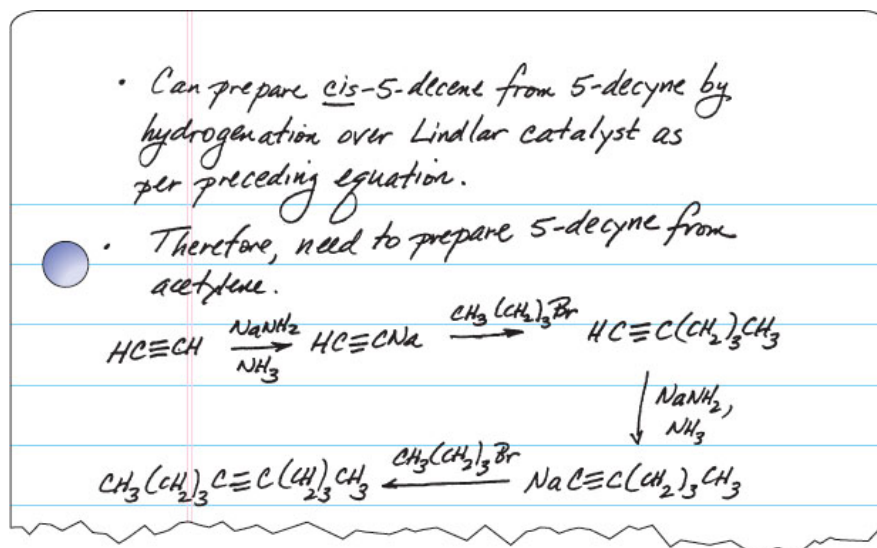 • Can prepare cis-5-decene from 5-decyne by
hydrogenation over Lindlar catalyst as
per preceding equation.
• Therefore, need to prepare 5-decyne from
acetylene.
HC≡CH NaNH₂ NH₃ HC≡CNa CH₃(CH₂)₃Br HC≡C(CH₂)₃CH₃
NaNH₂,
NH₃
CH₃(CH₂)₃C≡C(CH₂)₃CH₃ CH₃(CH₂)₃Br NaC≡C(CH₂)₃CH₃